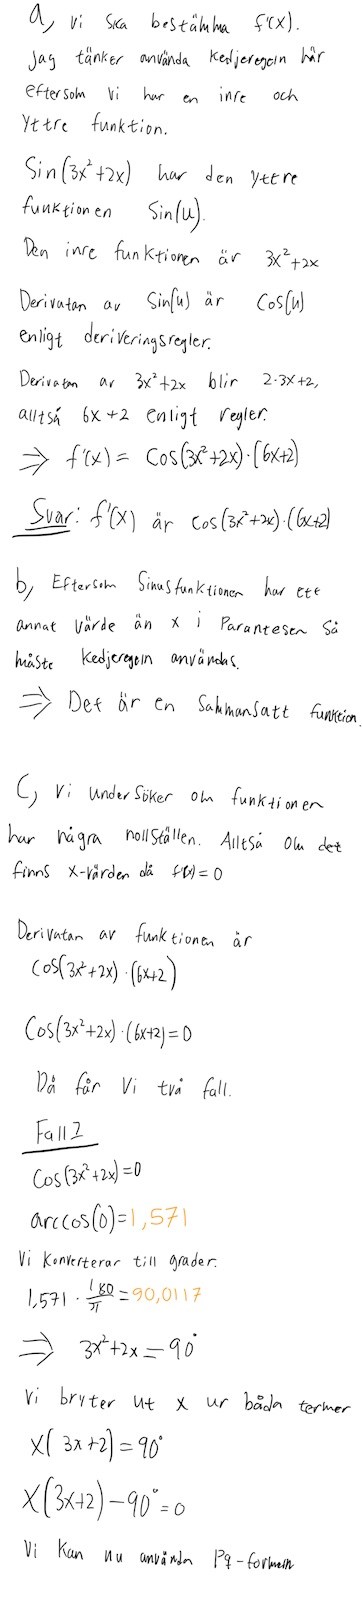 a, Vi ska bestämma f'(x).
Jag tänker använda kedjeregeln här
eftersom vi har en inre och
Yttre funktion.
Sin(3x²+2x) har den yttre
funktionen Sin(u).
Den inre funktionen är 3x²+2x
Derivatan av Sin(u) är Cos(u)
enligt deriveringsregler.
Derivatan av 3x²+2x blir 2·3x+2,
alltså 6x+2 enligt regler.
⇒ f'(x) = Cos(3x²+2x)·(6x+2)
Svar: f'(x) är cos(3x²+2x)·(6x+2)
b, Eftersom Sinusfunktionen har ett
annat värde än x i Parantesen så
måste kedjeregeln användas.
⇒ Det är en Sammansatt funktion.
C, Vi undersöker om funktionen
har några nollställen. Alltså om det
finns x-värden då f'(x)=0
Derivatan av funktionen är
Cos(3x²+2x)·(6x+2)
Cos(3x²+2x)·(6x+2)=0
Då får Vi två fall.
Fall 1
Cos(3x²+2x)=0
arccos(0)=1,571
Vi konverterar till grader.
1,571 · 180/π = 90,0117
⇒ 3x²+2x = 90°
Vi bryter ut x ur båda termer
X(3x+2)=90°
X(3x+2)-90°=0
Vi kan nu använda Pq-formeln